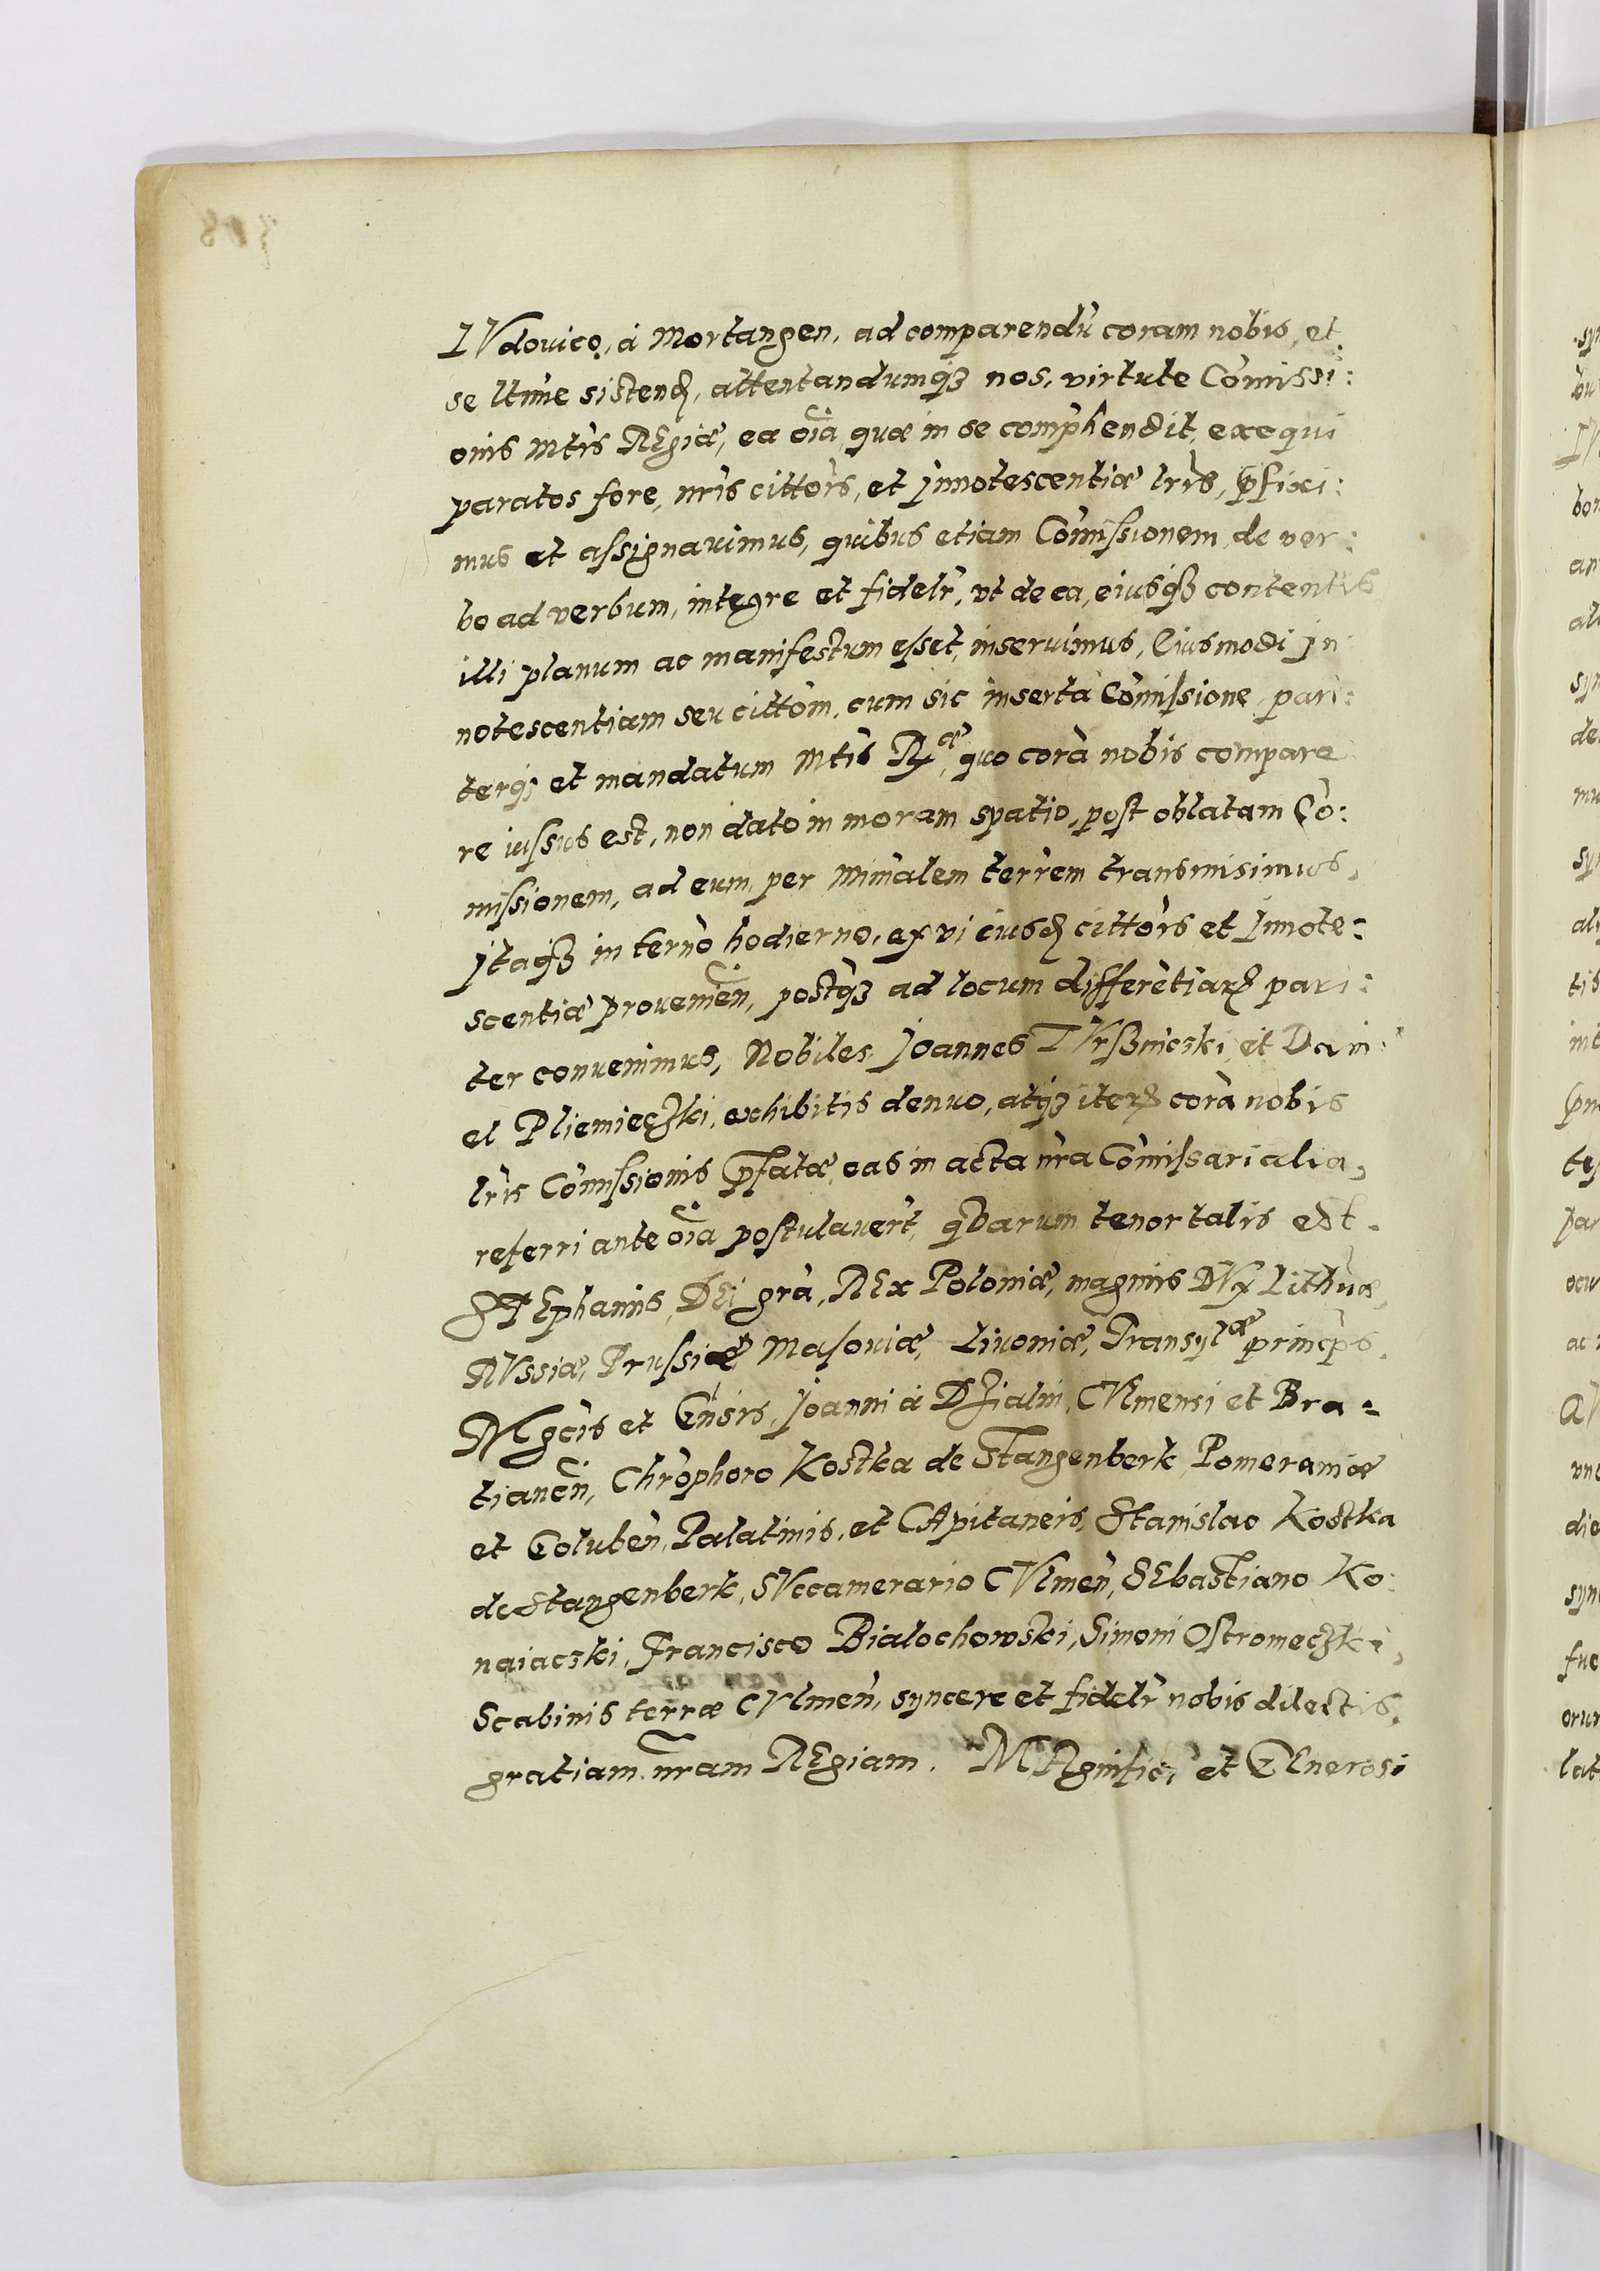 LVdouico, à Mortangen, ad comparendũ coram nobis, et
se ltime sistend, attentandumq3 nos, virtute Com̃issi:
onis Mtis REgiæ, ea oĩa, quæ in se comp̃hendit, exequi
paratos fore, nris cittors, et Jnnotescentiæ lrĩs, p̃fixi:
mus et assignauimus, quibus etiam Com̃issionem, de ver:
bo ad verbum, integre et fidelr, vt de ea, eiusq3 contentis
illi planum ac manifestum esset, inseruimus, Eiusmodi Jn
notescentiam seu cittom, cum sic inserta Com̃issione, pari:
terq3 et mandatum Mtis Ræ, quo corã nobis compare
re iussus est, non dato in moram spatio, post oblatam Co:
missionem, ad eum, per Minialem terrem transmisimus,
Jtaq3 in terño hodierno, ex vi eiusd cittors et Jnnote:
scentiæ prouenien, postq3 ad locum differẽtiar pari:
ter conuenimus, Nobiles Joannes TVrßnicski, et Dani:
el Pliemieczki, exhibitis denuo, atq3 iter corã nobis
lris Com̃issionis p̃fatæ, eas in acta nra Com̃issarialia,
referri ante oĩa postulauert, quarum tenor talis est.
STEphanus, DEi gra, REx Poloniæ, magnus DVx Lithuæ,
RVssiæ, Prussiæ, Masouiæ, Liuoniæ, Transylæ princps.
Mgcis et Gnsis, Joanni à Dzialin, CVlmensi et Bra-
tianen, Chrophoro Kostka de Stangenberk, Pomeraniæ
et Goluben, Palatinis, et CApitaneis, Stanislao Kostka
de Stangenberk, SVccamerario CVlmen, SEbastiano Ko:
naiacski, Francisco Bialochowski, Simoni Ostromeczki,
Scabinis terræ CVlmen, syncere et fidelr nobis dilectis,
gratiam nram REgiam. MAgnifici et GEnerosi